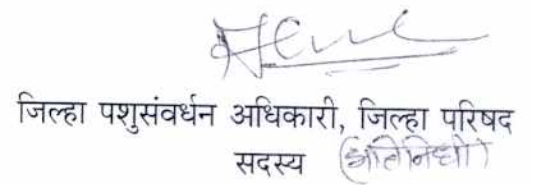 जिल्हा पशुसंवर्धन अधिकारी, जिल्हा परिषद
सदस्य (प्रतिनिधी)